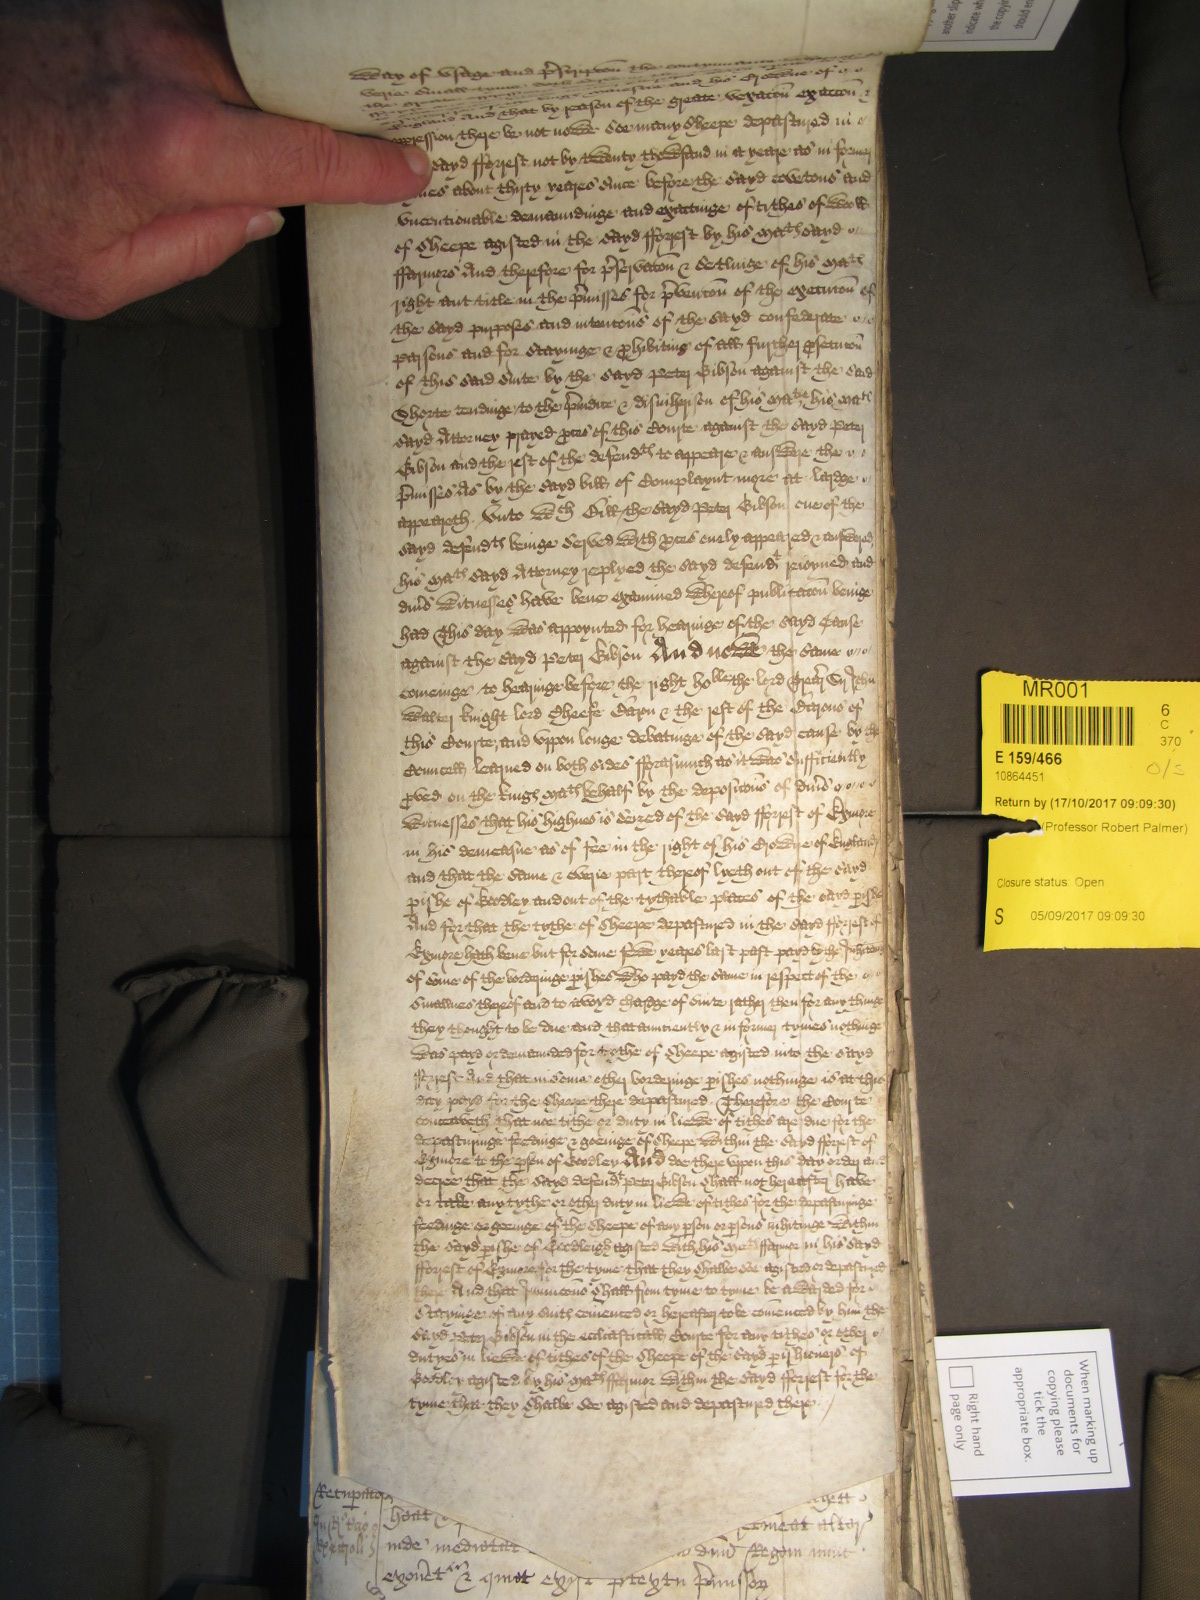 way of usage and p̄scripcon the contynuance
verie small tyme
and his Crowne of
England And that by reason of the greate vexacōn exaccōn &
opression there be not nowe soe many sheepe depastured in
sayd fforrest not by twenty thowsand in a yeare as in former
tymes about thirty yeares since before the sayd covetous and
unconcionable demaundinge and exactinge of tithes of wooll
of sheepe agisted in the sayd fforrest by his Matͥˢ sayd
ffarmors And therefore for p̄servacōn & setlinge of his Matͥˢ
right ant title in the p̄misses for p̄vencōn of the execucōn of
the sayd purposes and intencōns of the sayd confederate
parsons and for stayinge & ꝓhibiting of all further ꝓsecucōn
of this said suite by the sayd Peter Gibson against the said
Shorte tendinge to the p̄iudice & disinherison of his Matͥᵉ his Matͥˢ
sayd Attorney prayed ꝓces of this Courte against the sayd Peter
Gibson and the rest of the defendᵗˢ to appeare & answere the
p̄misses As by the sayd bill of Complaynt more at lardge
appeareth. Unto wᶜʰ Bill the sayd Peter Gibson one of the
sayd defendᵗˢ beinge served with ꝓces only appeared & answered
his Matͥˢ sayd Attorney replyed the sayd defendᵗ reioyned and
div̄s witnesses have bene examined whereof publicacōn beinge
had This day was appoynted for hearinge of the sayd Cause
against the sayd Peter Gibson And nowe the same
comeinge to hearinge before the right hoᵇˡᵉ the lord Trēr Sʳ John
Walter knight lord Cheefe Baron & the rest of the Barons of
this Courte, and uppon longe debatinge of the sayd cause by the
Councell learned on both sides fforasmuch as it was sufficiently
ꝓved on the kings Matͥˢ behalf by the deposicōns of div̄s
Witnesses that his highnes is seized of the sayd fforrest of Exmore
in his demeasne as of fee in the right of his Crowne of England
and that the same & everie part thereof lyeth out of the sayd
pishe of Goodley and out of the tythable places of the sayd pishe
And for that the tythe of sheepe depastured in the sayd fforrest of
Exmore hath bene but for some fewe yeares last past payd by the Inhitants
of some of the borderinge pishes who payd the same in respect of the
smallnes thereof and to avoyd chardge of suite rather then for any thinge
they thought to be due and that aunciently & in former tymes nothinge
was payd or demaunded for tythe of sheepe agisted into the sayd
fforrest And that in some other borderinge pishes nothinge is at this
day payd for the sheepe there depastured. Therefore the Courte
conceaveth that noe tithe or duty in liewe of tithes are due for the
depasturinge feedinge & goeinge of sheepe within the sayd fforrest of
Exmore to the pson of Goodley And doe there upon this day order and
decree that the sayd defendᵗ Peter Gibson shall not hereafter have
or take any tythe or other duty in liewe of tithes for the depasturinge
feedinge or goeinge of the sheepe of any pson or psons inhitinge within
the sayd pishe of Goodleigh agisted with his Matͥˢ ffarmor in his sayd
fforrest of Exmore for the tyme that they shalbe soe agisted or depastured
there And that Iniunccōns shall from tyme to tyme be awarded for
stayinge of any suite comenced or hereafter to be comenced by him the
sayd Peter Gibson in the ecclīasticall Courte for any tithes or other
dutyes in liewe of tithes of the sheepe of the sayd pishioners of
Goodley agisted by his Matͥˢ ffarmor within the sayd fforrest for the
tyme that they shalbe soe agisted and depastured there
inde medietat
MR001
6
C
370
E 159/466
10864451
O/S
Return by (17/10/2017 09:09:30)
(Professor Robert Palmer)
Closure status: Open
S 05/09/2017 09:09:30
When marking up
documents for
copying please
tick the
appropriate box.
Right hand
page only
another slip
indicate wh
the copyin
should en